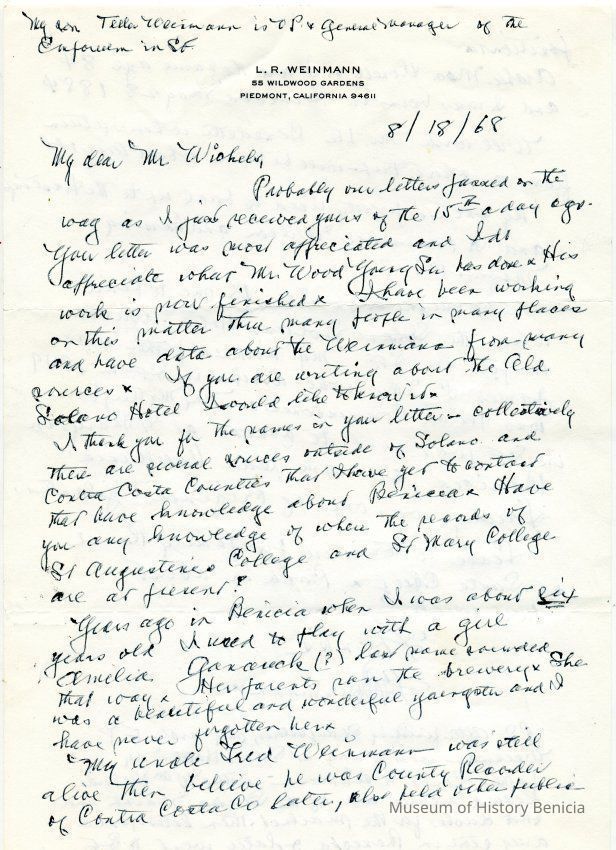 My son Tella Weinmann is V.P. & General Manager of the
Emporium in SF
L. R. WEINMANN
55 WILDWOOD GARDENS
PIEDMONT, CALIFORNIA 94611
8/18/68
My dear Mr Wichels,
Probably our letters passed on the
way as I just received yours of the 15th a day ago.
Your letter was most appreciated and I do
appreciate what Mr. Wood Young Sr has done x His
work is now finished x I have been working
on this matter thru many people in many places
and have data about the Weinmanns from many
sources x If you are writing about the Old
Solano Hotel I would like to know it x
I thank you for the names in your letter - collectively
there are several sources outside of Solano and
Contra Costa Counties that I have yet to contact
that have knowledge about Benicia x Have
you any knowledge of where the records of
St Augustines College and St Mary College
are at present?
Years ago in Benicia when I was about six
years old I used to play with a girl
Amelia (?) last name sounded
that way x Her parents ran the brewery x She
was a beautiful and wonderful youngster and I
have never forgotten her x
My uncle Fred Weinmann was still
alive then believe he was County Recorder
of Contra Costa Co later, also held other public
Museum of History Benicia